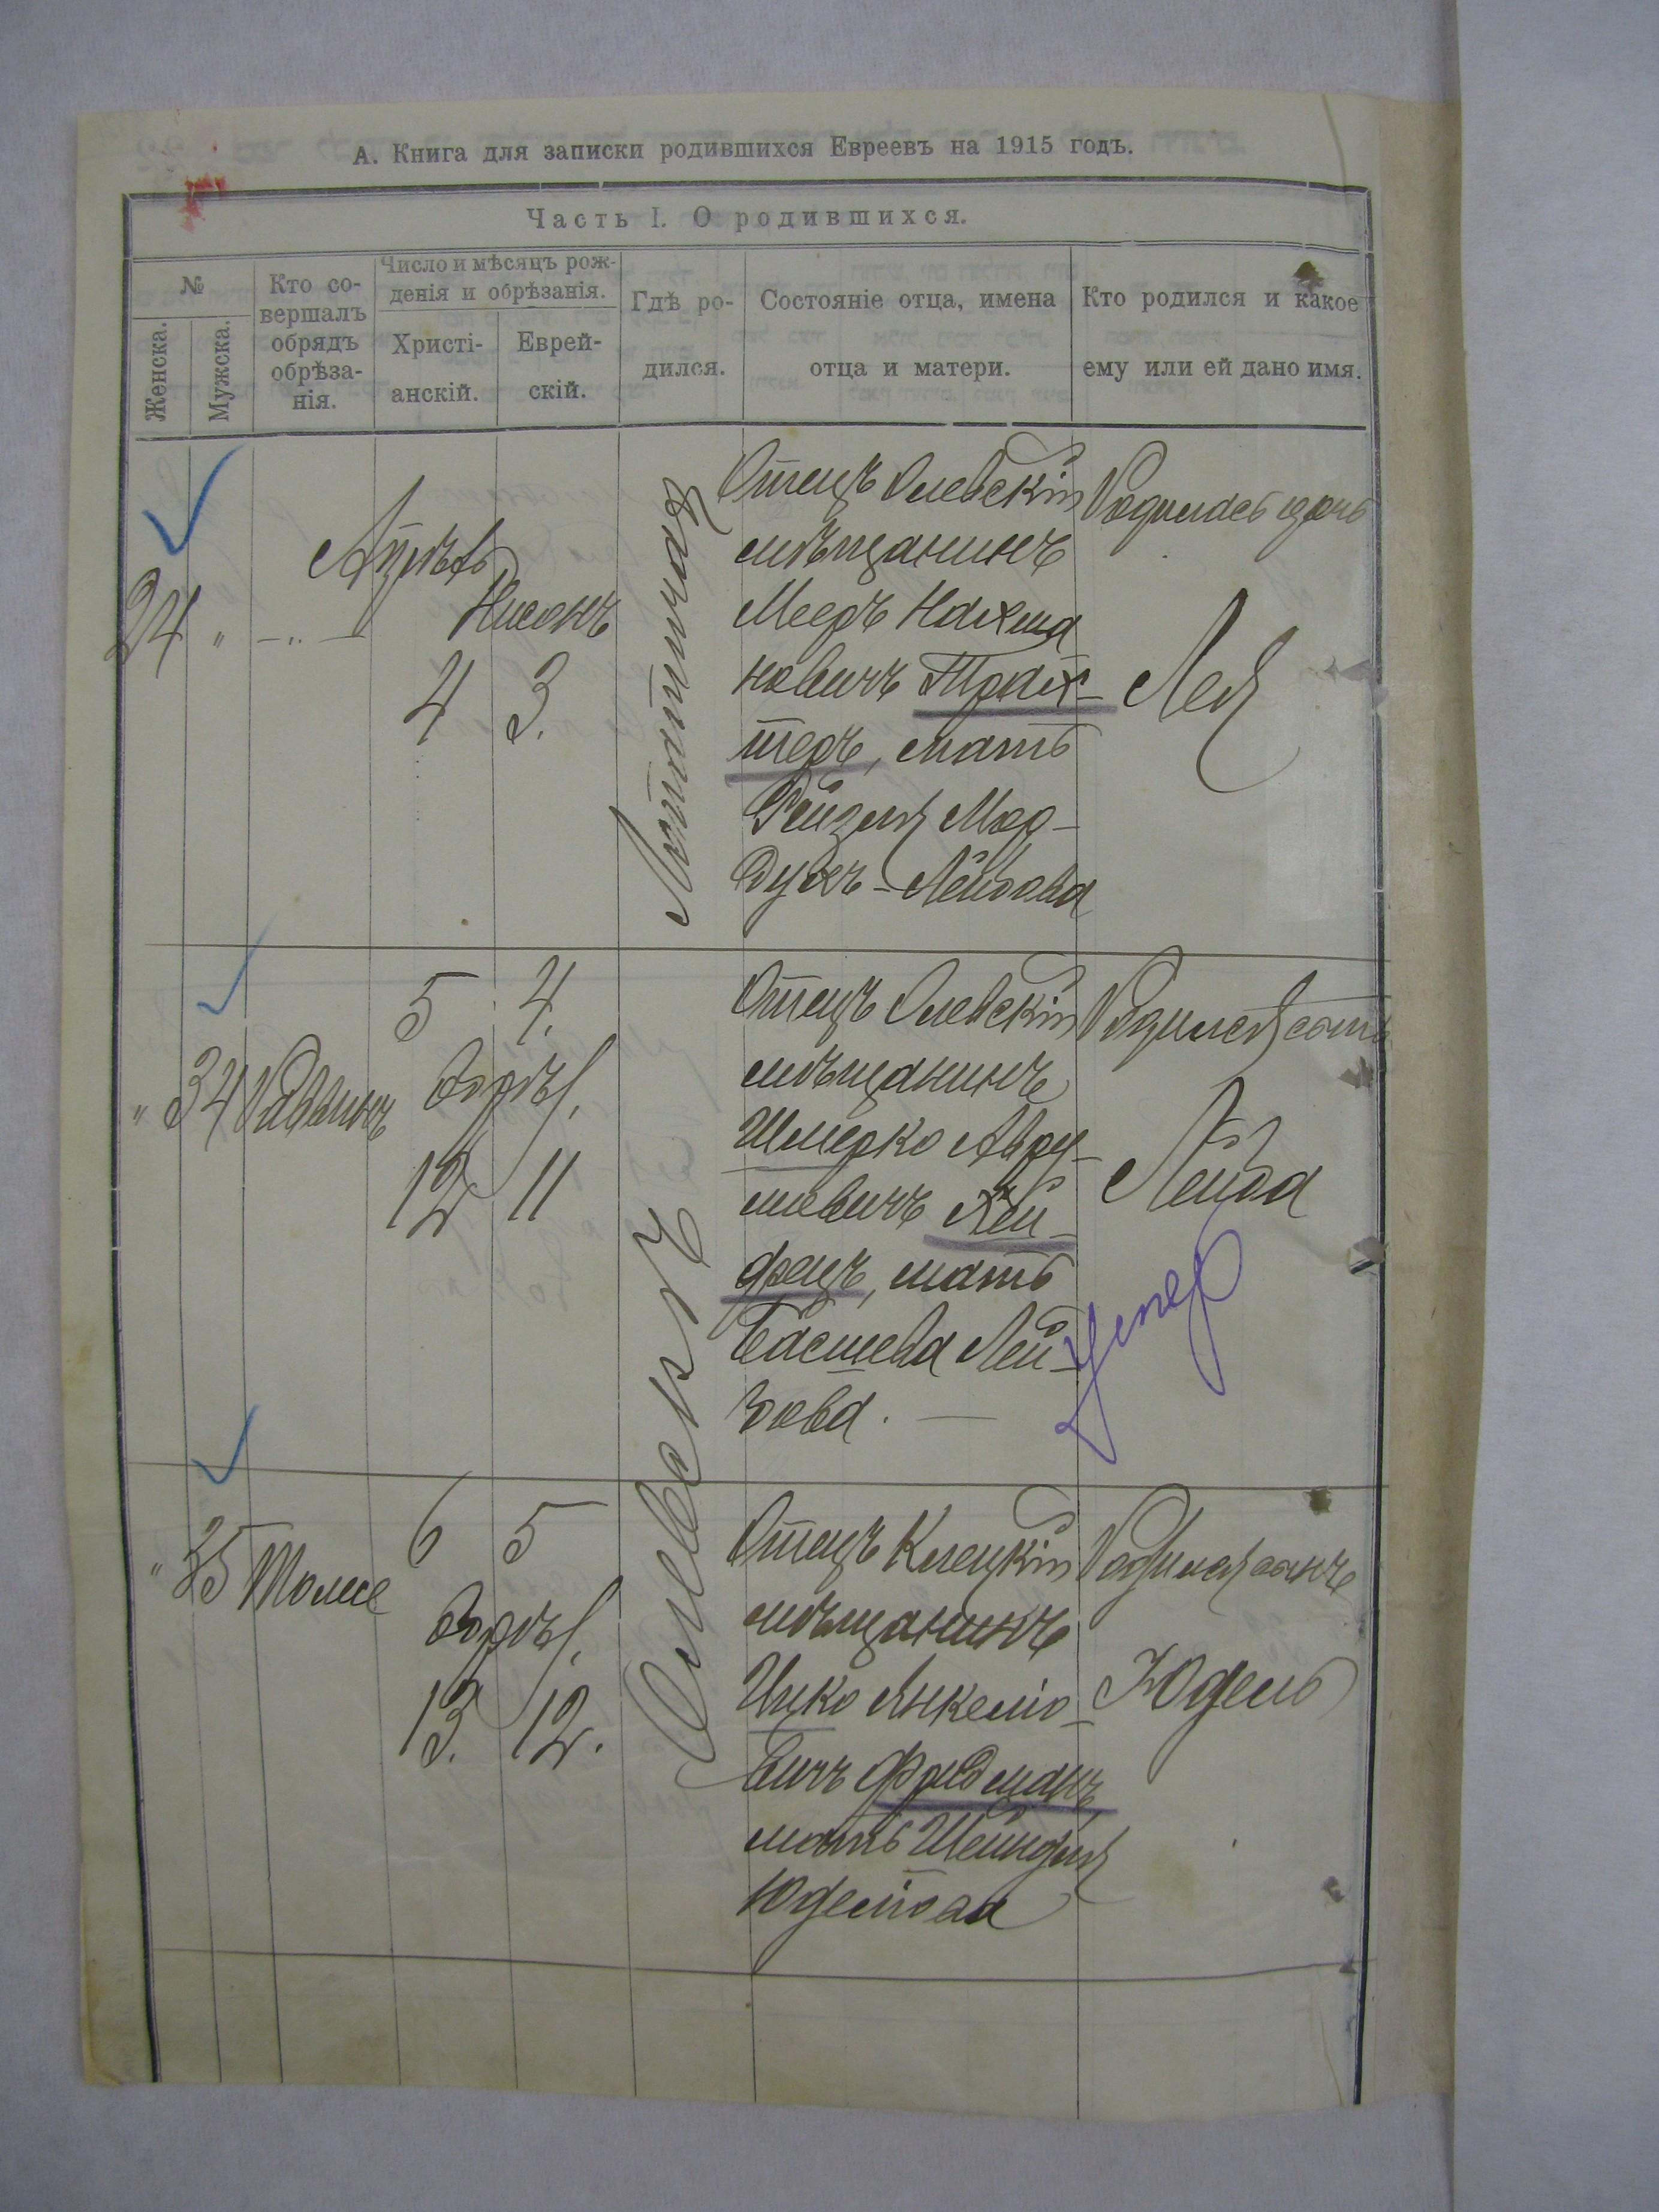 А. Книга для записки родившихся Евреевъ на 1915 годъ.
Часть I. О родившихся.
№
Женска.
Мужска.
Кто со-
вершалъ
обрядъ
обрѣза-
нія.
Число и мѣсяцъ рож-
денія и обрѣзанія.
Христі-
анскій.
Еврей-
скій.
Гдѣ ро-
дился.
Состояніе отца, имена
отца и матери.
Кто родился и какое
ему или ей дано имя.
24 „ — „ —
Апрѣль
Нисонъ
4 3.
Отецъ Олевскій
мѣщанинъ
Мееръ Нахма
новичъ Трах-
теръ, мать
Рейзля Мор-
духъ-Лейбова
Родилась дочь
Лея
„ 34 Раввинъ
5 4.
Обрѣз.
12 11
Отецъ Олевскій
мѣщанинъ
Шмерко Авру-
мовичъ Хей-
фецъ, мать
Басшева Лей-
бова. —
Родился сынъ
Лейба
Умер
„ 35
6 5
Обрѣз.
13. 12.
м. Олевскъ
Отецъ Клецкій
мѣщанинъ
Ицко Янкеліо-
вичъ Фридманъ,
мать Шейндля
Юделіова
Родился сынъ
Юдель